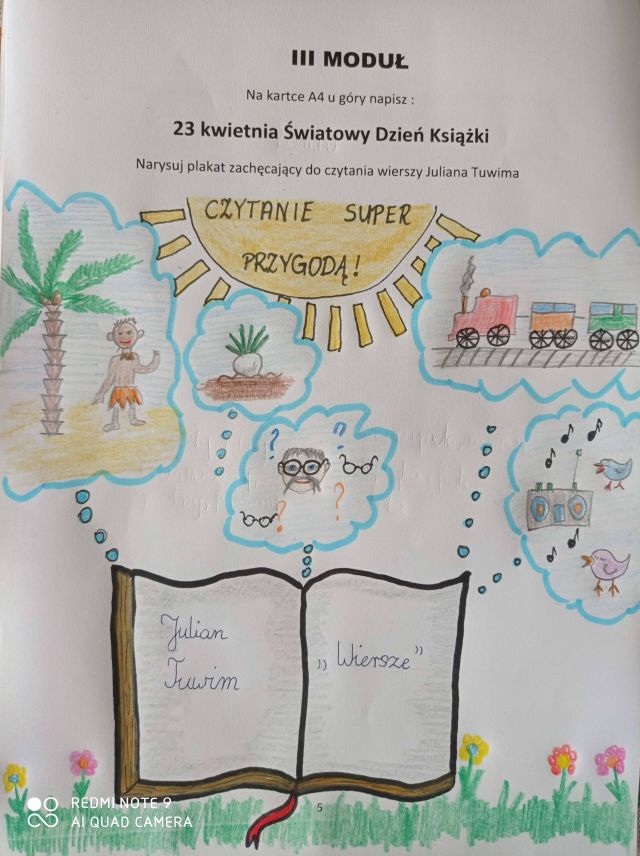 III MODUŁ
Na kartce A4 u góry napisz :
23 kwietnia Światowy Dzień Książki
Narysuj plakat zachęcający do czytania wierszy Juliana Tuwima
CZYTANIE SUPER
PRZYGODĄ!
? ?
? ?
Julian
Tuwim
„Wiersze”
5
REDMI NOTE 9
AI QUAD CAMERA